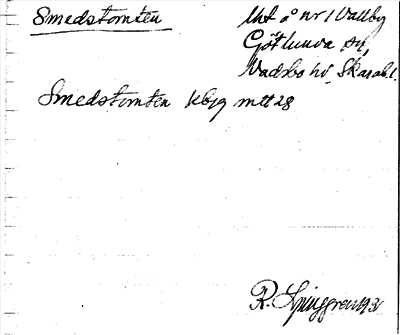 Smedstomten
Utt å nr 1 Vallby
Götlunda sn,
Vadsbo hd, Skarab l.
Smedstomten kbjg mtt 28
R. Ljunggren 1931